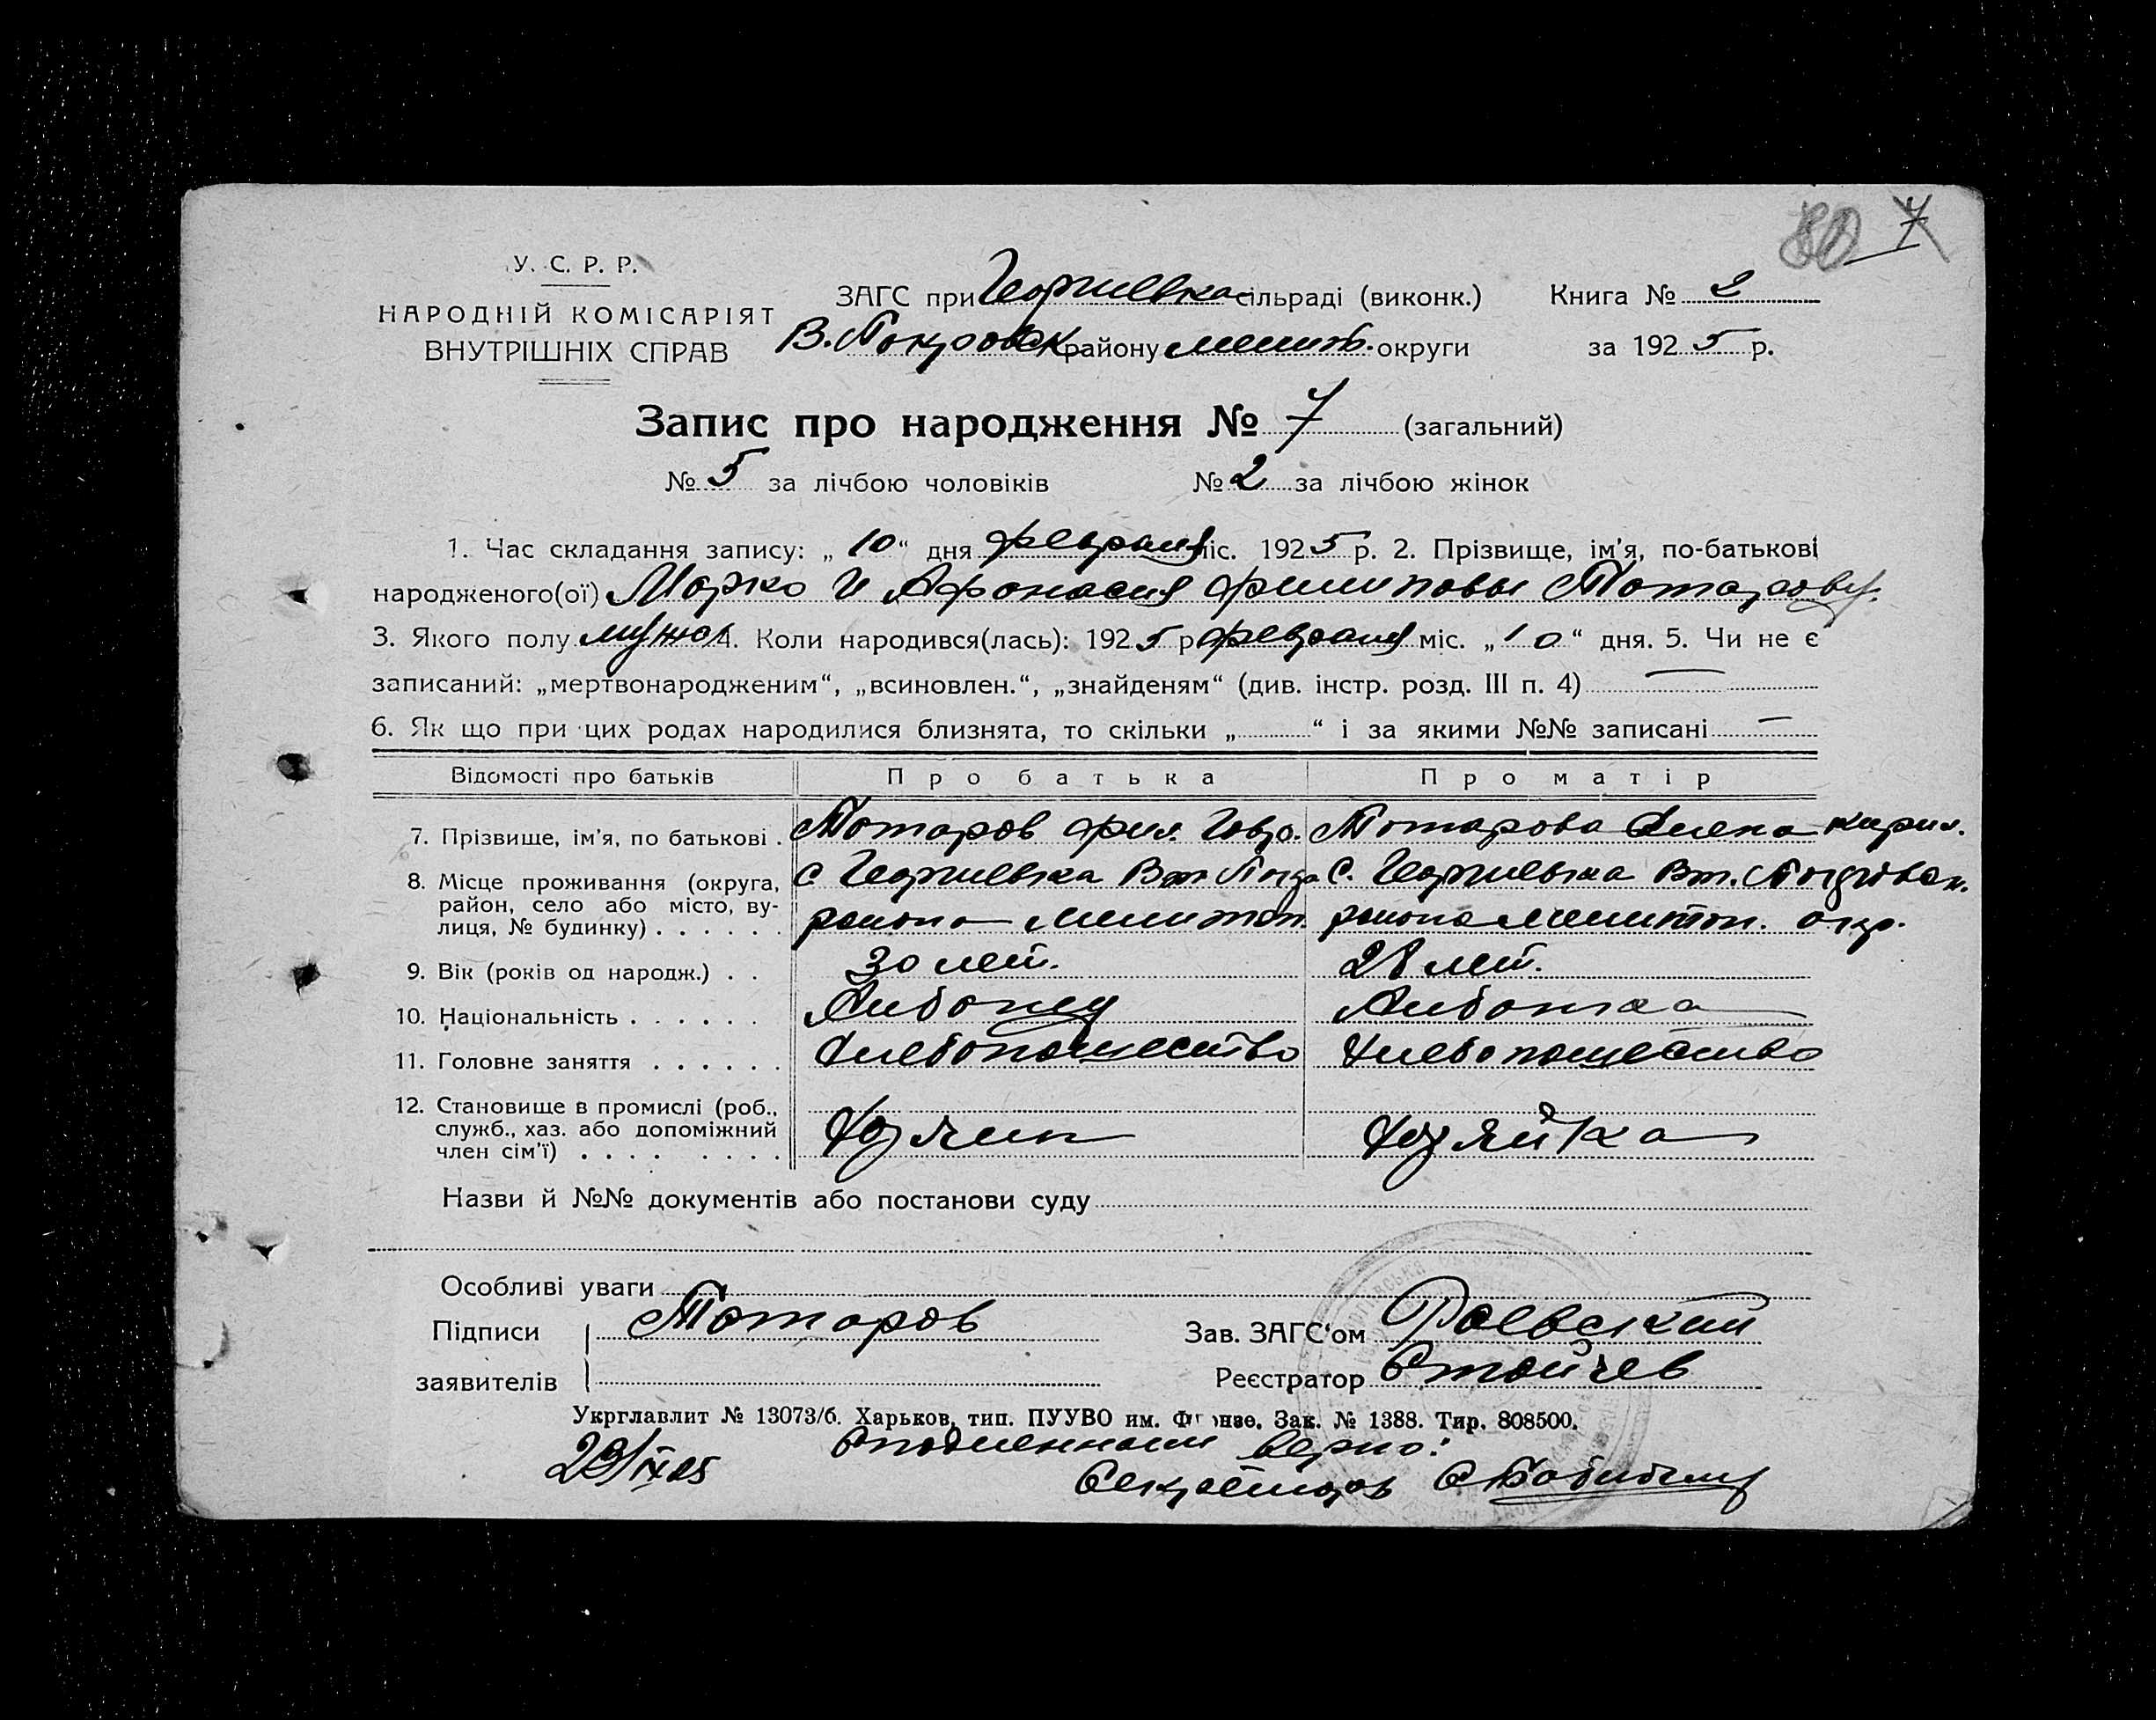 80 7
У. С. Р. Р.
НАРОДНІЙ КОМІСАРІЯТ
ВНУТРІШНІХ СПРАВ
ЗАГС при Георгиевка сільраді (виконк.) Книга № 2
В. Покровск району мелит. округи за 1925 р.
Запис про народження № 7 (загальний)
№ 5 за лічбою чоловіків № 2 за лічбою жінок
1. Час складання запису: „ 10 “ дня февраля міс. 1925 р. 2. Прізвище, ім’я, по-батькові
народженого(ої) Марко и Афонасия филиповы Тотаровы.
3. Якого полу мужск 4. Коли народився(лась): 1925 р февраля міс. „ 10 “ дня. 5. Чи не є
записаний: „мертвонародженим“, „всиновлен.“, „знайденям“ (див. інстр. розд. III п. 4) —
6. Як що при цих родах народилися близнята, то скільки „ “ і за якими №№ записані —
Відомості про батьків Про батька Про матір
7. Прізвище, ім’я, по батькові . Тотаров фил. Гавр. Тотарова Елена кирил.
8. Місце проживання (округа, с Георгиевка Вт Покр С. Георгиевка Вт. Покровск.
район, село або місто, ву-
лиця, № будинку) . . . . . . района мелитоп. района мелитоп. окр.
9. Вік (років од народж.) . . 30 лет. 28 лет.
10. Національність . . . . . . Албонец Албонка
11. Головне заняття . . . . . . Хлебопашество Хлебопашество
12. Становище в промислі (роб.,
служб., хаз. або допоміжний Хозяин Хозяйка
член сім’ї) . . . . . . . .
Назви й №№ документів або постанови суду
Особливі уваги
Підписи Тотаров Зав. ЗАГС‘ом Раевский
заявителів Реєстратор Стойчев
Укрглавлит № 13073/б. Харьков, тип. ПУУВО им. Фрунзе. Зак. № 1388. Тир. 808500.
29/IX 25 С подленным верно:
Секретарь